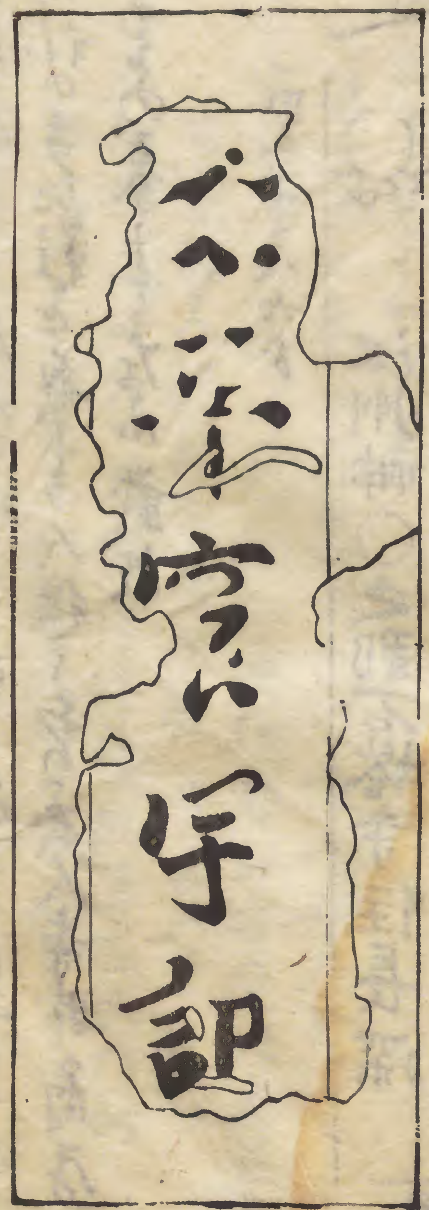 太平寰宇記